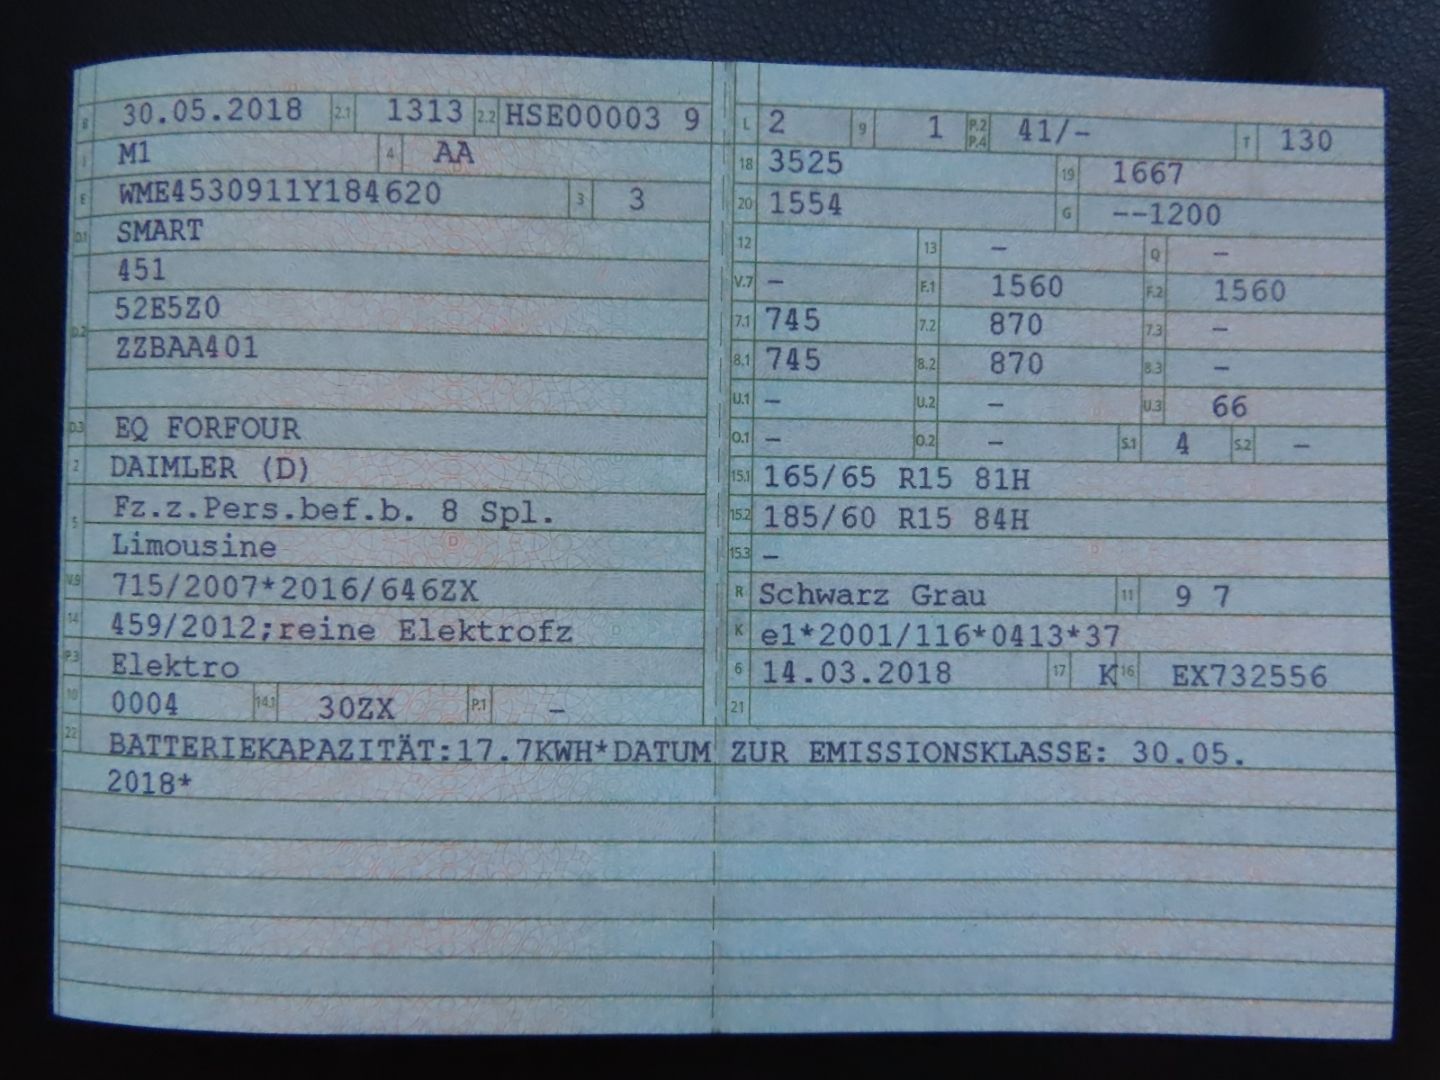 B 30.05.2018 2.1 1313 2.2 HSE00003 9
J M1 4 AA
E WME4530911Y184620 3 3
D.1 SMART
451
D.2 52E5Z0
ZZBAA401
D.3 EQ FORFOUR
2 DAIMLER (D)
5 Fz.z.Pers.bef.b. 8 Spl.
Limousine
V.9 715/2007*2016/646ZX
14 459/2012;reine Elektrofz
P.3 Elektro
10 0004 14.1 30ZX P.1 –
L 2 9 1 P.2 P.4 41/– T 130
18 3525 19 1667
20 1554 G --1200
12 13 – Q –
V.7 – F.1 1560 F.2 1560
7.1 745 7.2 870 7.3 –
8.1 745 8.2 870 8.3 –
U.1 – U.2 – U.3 66
O.1 – O.2 – S.1 4 S.2 –
15.1 165/65 R15 81H
15.2 185/60 R15 84H
15.3 –
R Schwarz Grau 11 9 7
K e1*2001/116*0413*37
6 14.03.2018 17 K 16 EX732556
21
22 BATTERIEKAPAZITÄT:17.7KWH*DATUM ZUR EMISSIONSKLASSE: 30.05.
2018*